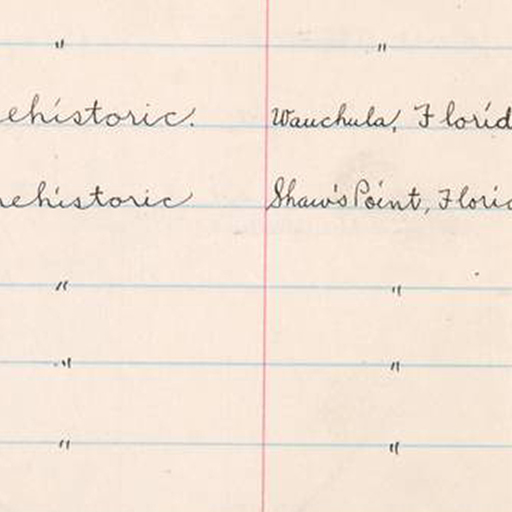 " "
ehistoric. Wauchula, Florid
rehistoric Shaw's Point, Florid
" "
" "
" "